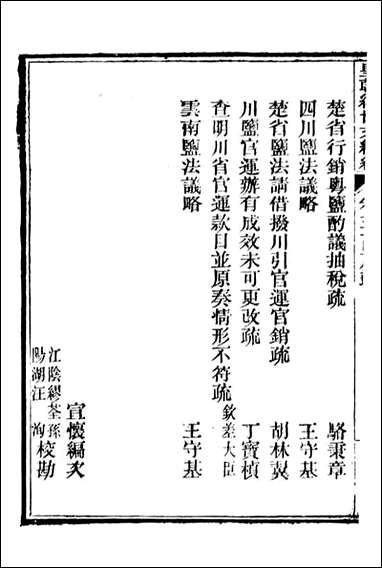 楚省行銷粵鹽酌議抽稅疏 駱秉章
四川鹽法議略 王守基
楚省鹽法請借撥川引官運官銷疏 胡林翼
川鹽官運辦有成效未可更改疏 丁寶楨
查明川省官運款目並原奏情形不符疏 欽差大臣
雲南鹽法議略 王守基
宣懷編次
江陰繆荃孫
陽湖汪洵校勘